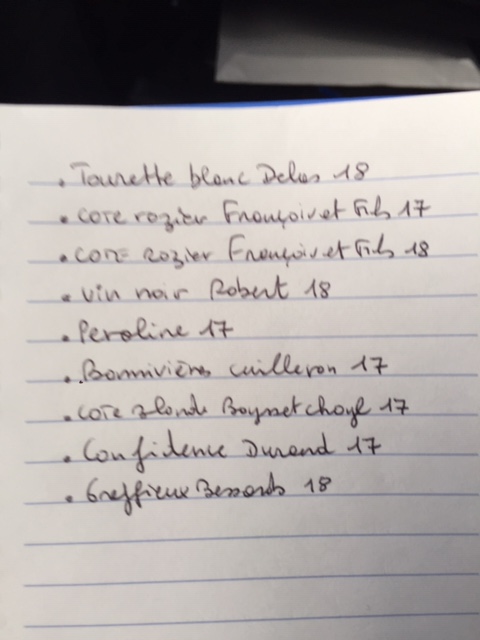 . Tourette blanc Delas 18
. core rozier François et Fils 17
. core rozier François et Fils 18
. vin noir Robert 18
. Peroline 17
. Bonnivières cuilleron 17
. core blonde 17
. Confidence Durand 17
. Greffieux Bessards 18